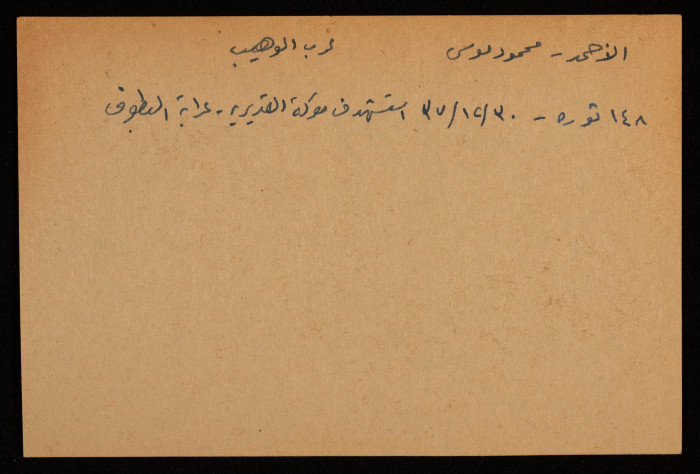 الأحمد - محمود موسى عرب الوهيب
١٤٨ ثوره - ٣٧/١٢/٣٠ استشهد في معركة القديريه - عرابة البطوف